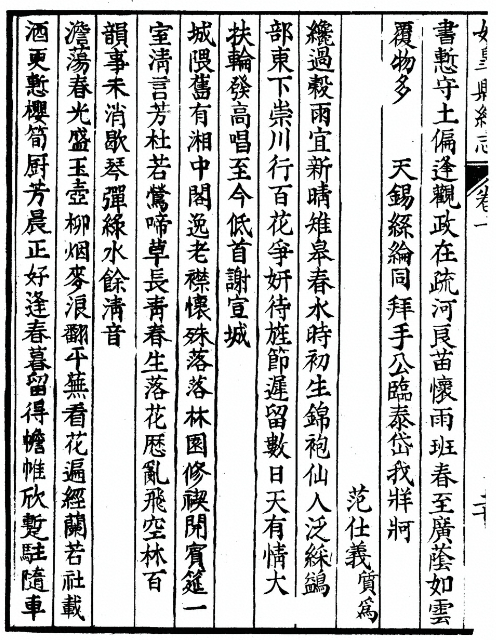 如皋縣續志
卷十
書慙守土偏逢觀政在疏河良苗懷雨班春至廣蔭如雲
覆物多　天錫絲綸同拜手公臨泰岱我牂牁
范仕義質為
纔過穀雨宜新晴雉皋春水時初生錦袍仙人泛綵鷁
部東下崇川行百花爭妍待旌節遲留數日天有情大
扶輪發高唱至今低首謝宣城
城隈舊有湘中閣逸老襟懷殊落落林園修禊開賓筵一
室清言芳杜若鶯啼草長青春生落花歷亂飛空林百
韻事未消歇琴彈綠水餘清音
澹蕩春光盛玉壺柳烟麥浪翻平蕪看花遍經蘭若社載
酒更慙櫻筍厨芳晨正好逢春暮留得幨帷欣蹔駐隨車